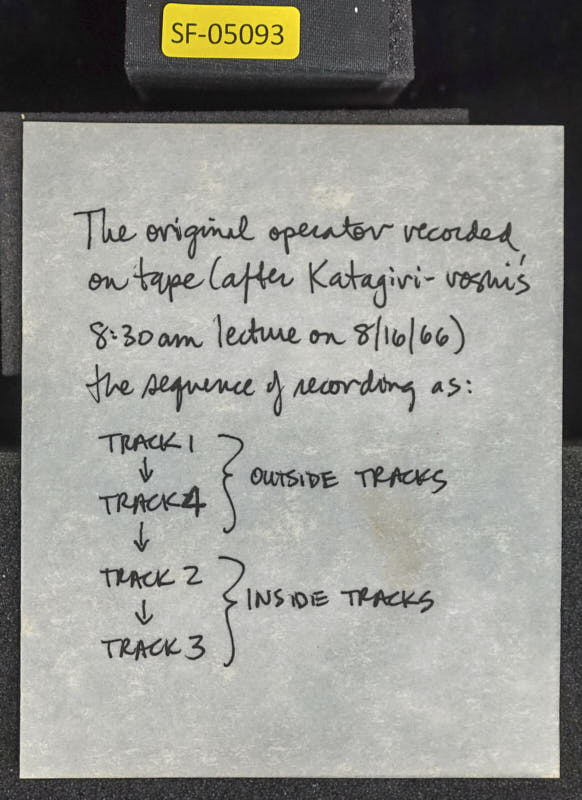 SF-05093
The original operator recorded
on tape (after Katagiri-roshi's
8:30am lecture on 8/16/66)
the sequence of recording as:
TRACK 1
↓
TRACK 4
} OUTSIDE TRACKS
↓
TRACK 2
↓
TRACK 3
} INSIDE TRACKS